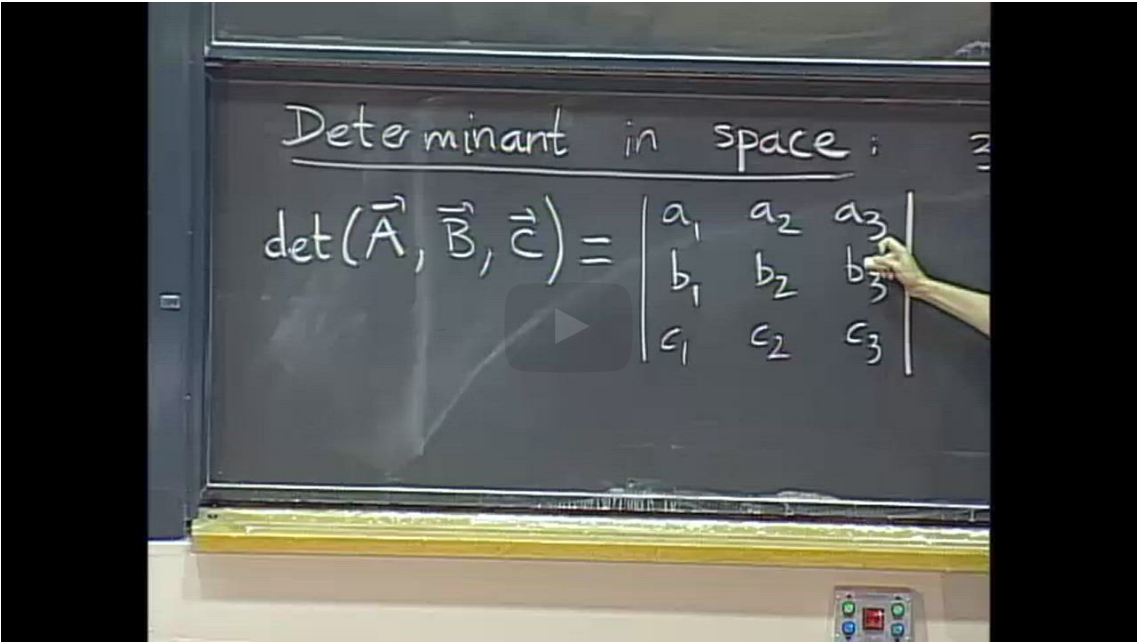 Determinant in space: 3
det(A⃗, B⃗, C⃗) = | a₁ a₂ a₃ |
| b₁ b₂ b₃ |
| c₁ c₂ c₃ |